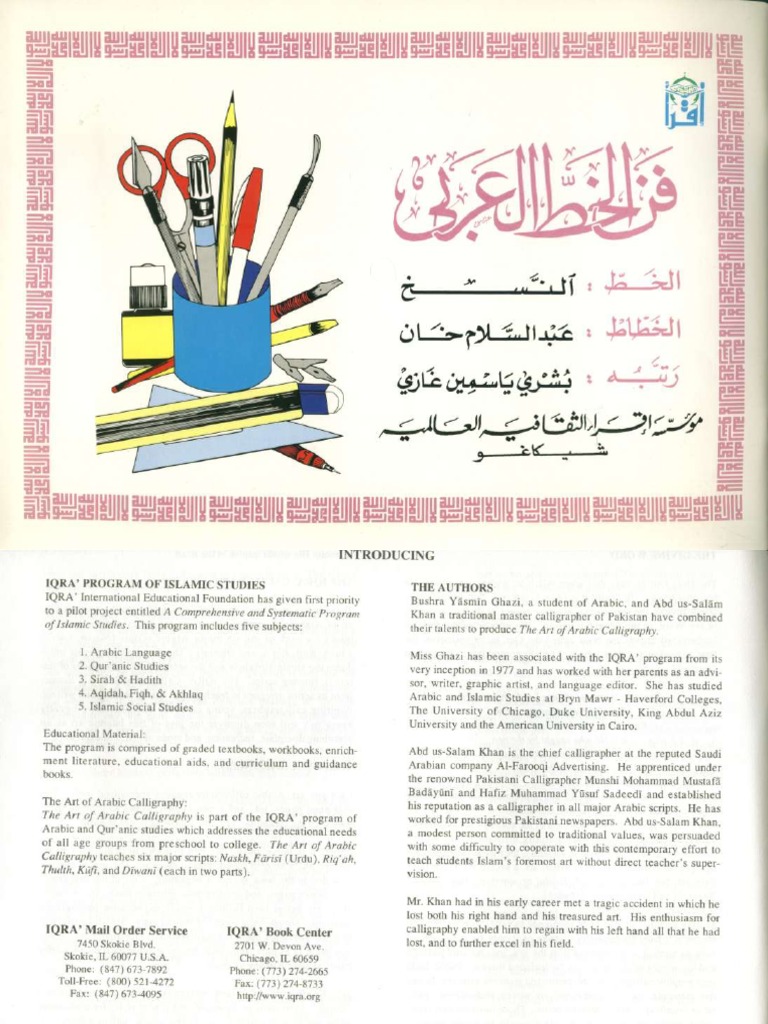 اقرأ
فن الخط العربي
الخـط : النسـخ
الخَطّاط : عَبْد السَّلام خان
رَتّبَه : بُشْري يَاسْمِين غَازي
مؤسسه اقراء الثقافيه العالميه
شيكاغو
INTRODUCING
IQRA’ PROGRAM OF ISLAMIC STUDIES
IQRA’ International Educational Foundation has given first priority
to a pilot project entitled A Comprehensive and Systematic Program
of Islamic Studies. This program includes five subjects:
1. Arabic Language
2. Qur’anic Studies
3. Sirah & Hadith
4. Aqidah, Fiqh, & Akhlaq
5. Islamic Social Studies
Educational Material:
The program is comprised of graded textbooks, workbooks, enrich-
ment literature, educational aids, and curriculum and guidance
books.
The Art of Arabic Calligraphy:
The Art of Arabic Calligraphy is part of the IQRA’ program of
Arabic and Qur’anic studies which addresses the educational needs
of all age groups from preschool to college. The Art of Arabic
Calligraphy teaches six major scripts: Naskh, Fārisī (Urdu), Riq‘ah,
Thulth, Kūfī, and Dīwanī (each in two parts).
IQRA’ Mail Order Service
7450 Skokie Blvd.
Skokie, IL 60077 U.S.A.
Phone: (847) 673-7892
Toll-Free: (800) 521-4272
Fax: (847) 673-4095
IQRA’ Book Center
2701 W. Devon Ave.
Chicago, IL 60659
Phone: (773) 274-2665
Fax: (773) 274-8733
http://www.iqra.org
THE AUTHORS
Bushra Yāsmīn Ghazi, a student of Arabic, and Abd us-Salām
Khan a traditional master calligrapher of Pakistan have combined
their talents to produce The Art of Arabic Calligraphy.
Miss Ghazi has been associated with the IQRA’ program from its
very inception in 1977 and has worked with her parents as an advi-
sor, writer, graphic artist, and language editor. She has studied
Arabic and Islamic Studies at Bryn Mawr - Haverford Colleges,
The University of Chicago, Duke University, King Abdul Aziz
University and the American University in Cairo.
Abd us-Salam Khan is the chief calligrapher at the reputed Saudi
Arabian company Al-Farooqi Advertising. He apprenticed under
the renowned Pakistani Calligrapher Munshi Mohammad Mustafā
Badāyūnī and Hafiz Muhammad Yūsuf Sadeedī and established
his reputation as a calligrapher in all major Arabic scripts. He has
worked for prestigious Pakistani newspapers. Abd us-Salam Khan,
a modest person committed to traditional values, was persuaded
with some difficulty to cooperate with this contemporary effort to
teach students Islam’s foremost art without direct teacher’s super-
vision.
Mr. Khan had in his early career met a tragic accident in which he
lost both his right hand and his treasured art. His enthusiasm for
calligraphy enabled him to regain with his left hand all that he had
lost, and to further excel in his field.